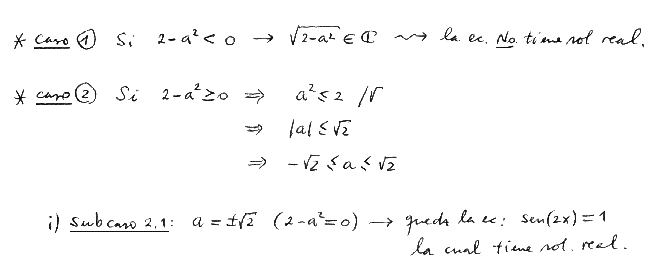 * caso ① Si 2-a² < 0 → √2-a² ∈ ℂ ⇝ la ec. No tiene sol real.
* caso ② Si 2-a² ≥ 0 ⇒ a² ≤ 2 /√
⇒ |a| ≤ √2
⇒ -√2 ≤ a ≤ √2
i) Subcaso 2.1: a = ±√2 (2-a²=0) → queda la ec: sen(2x) = 1
la cual tiene sol. real.